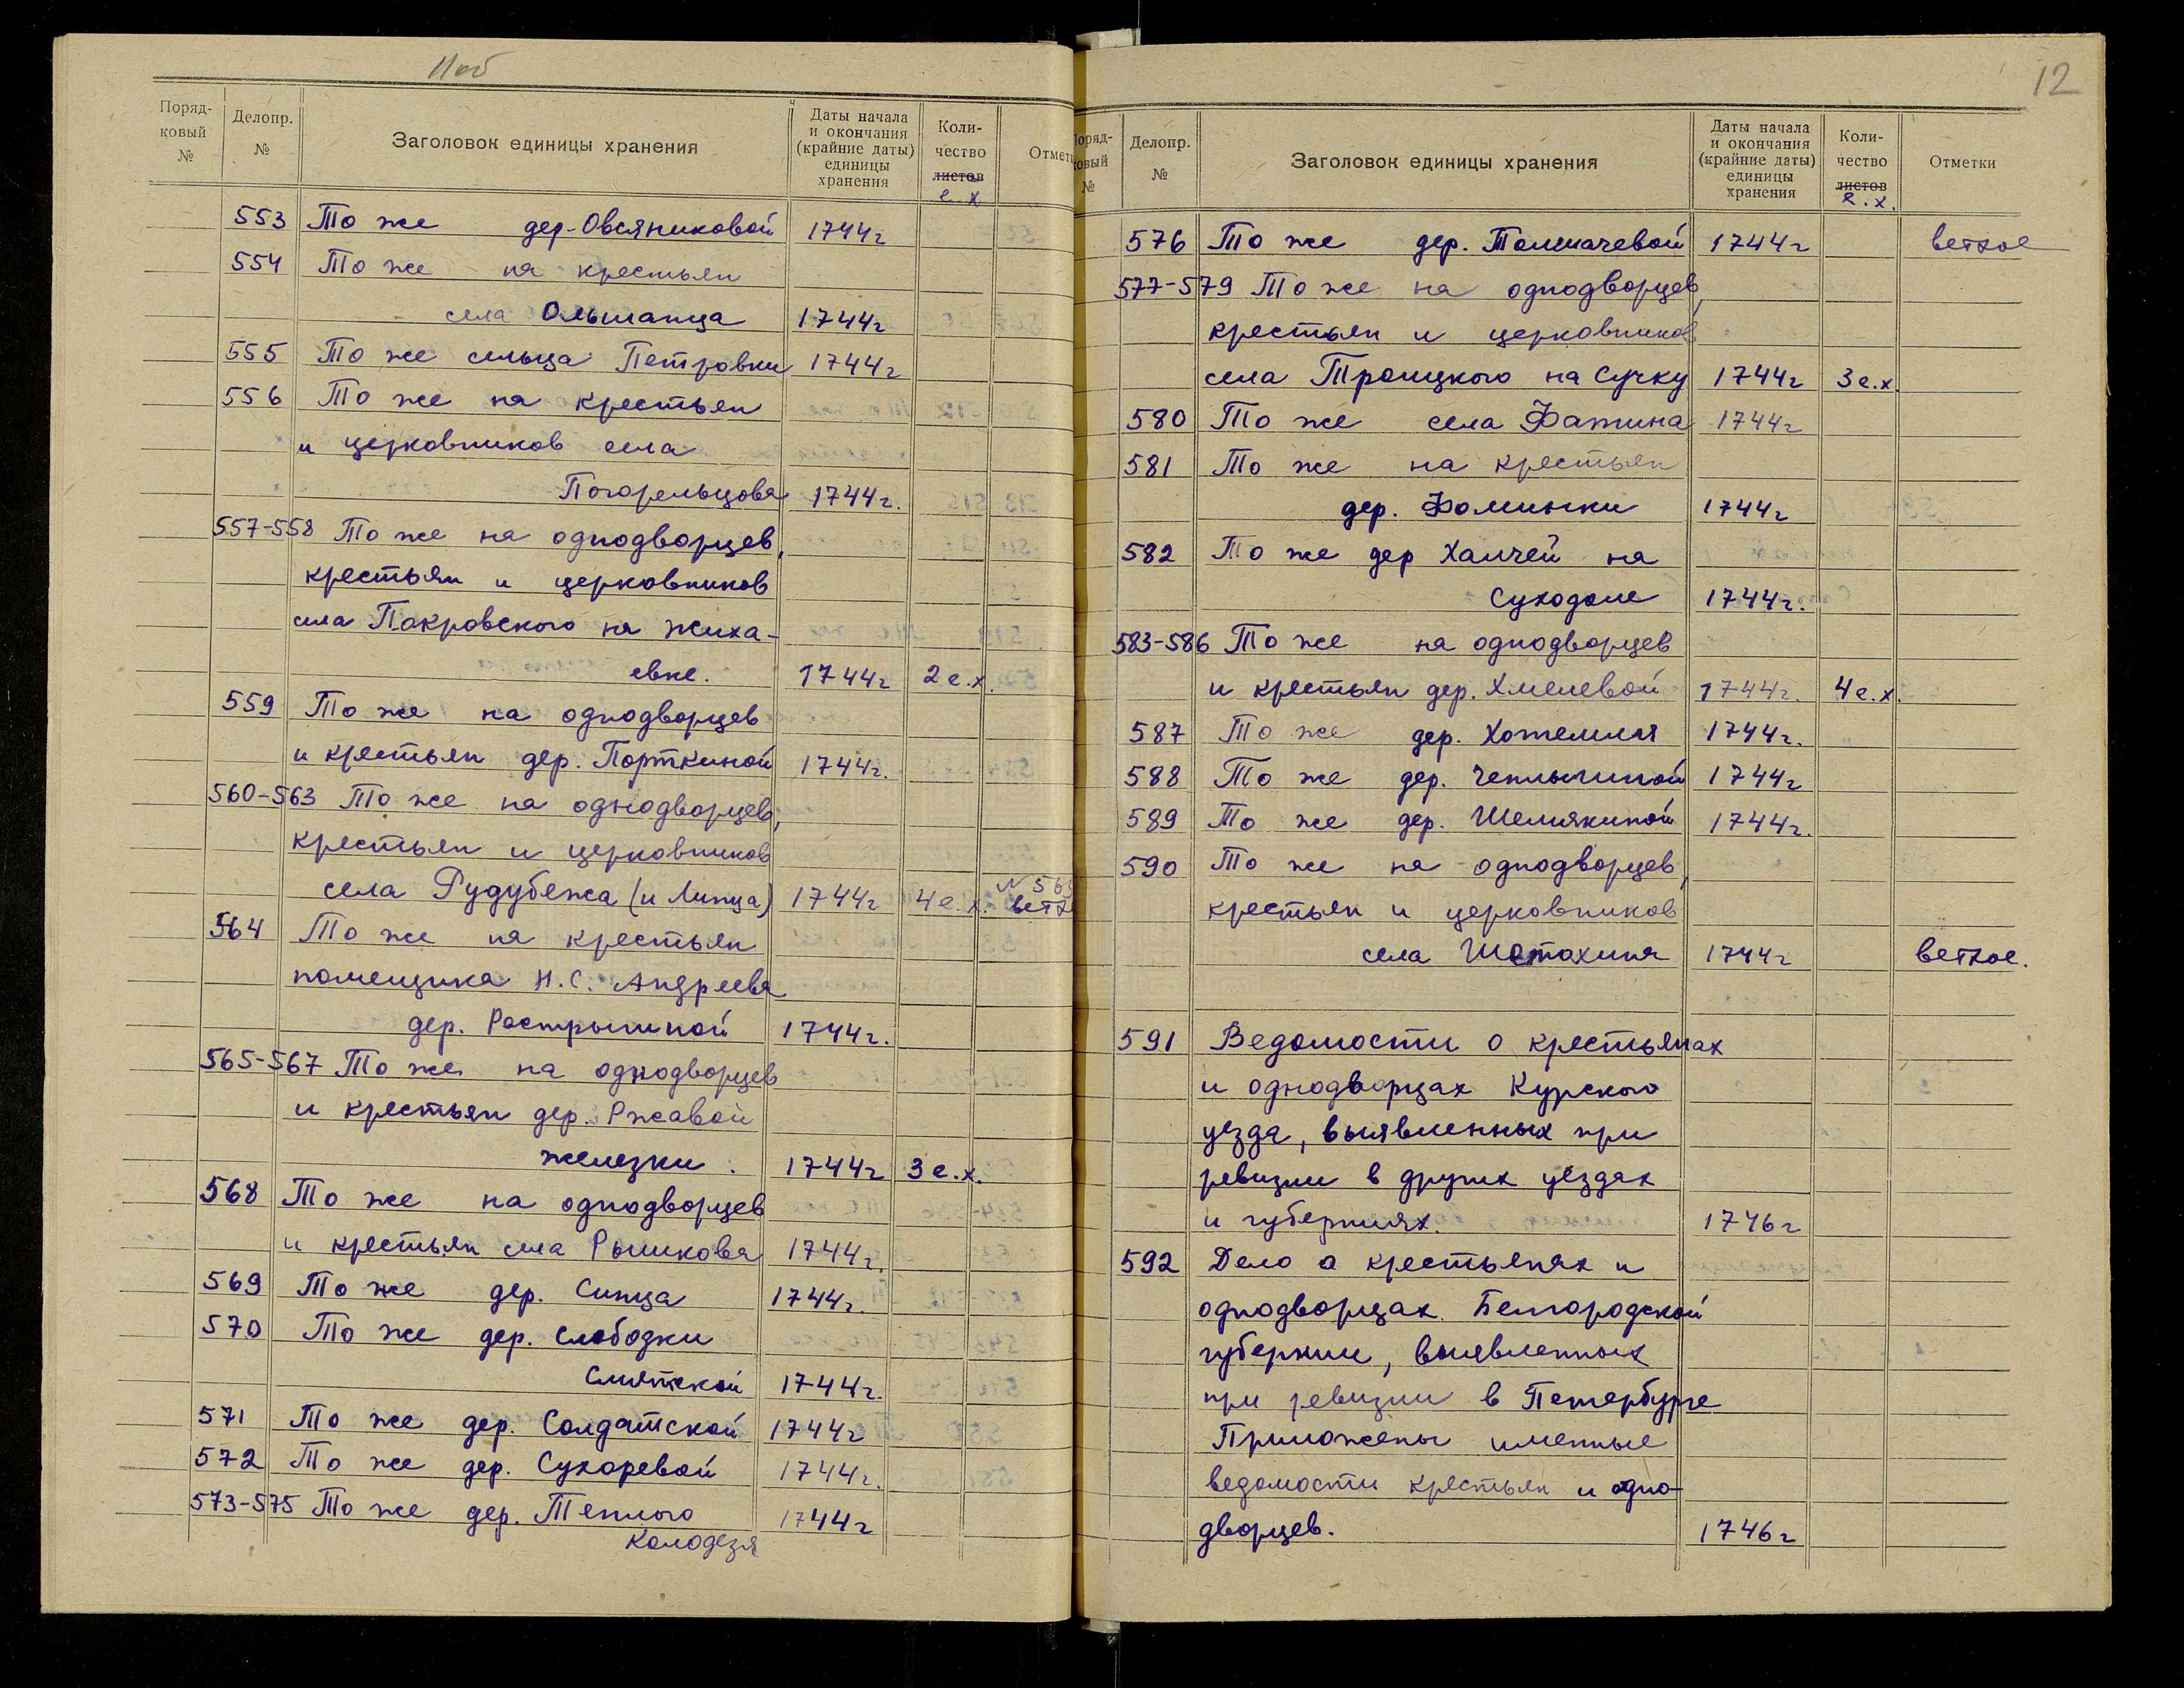 11об
Поряд-
ковый
№
Делопр.
№
Заголовок единицы хранения
Даты начала
и окончания
(крайние даты)
единицы
хранения
Коли-
чество
листов
е.х
Отметк
553 То же дер. Овсяниковой 1744г
554 То же на крестьян
села Ольшанца 1744г
555 То же сельца Петровки 1744г
556 То же на крестьян
и церковников села
Погорельцова 1744г.
557-558 То же на однодворцев,
крестьян и церковников
села Покровского на Жиха-
евке. 1744г 2 е.х.
559 То же на однодворцев
и крестьян дер. Порткиной 1744г.
560-563 То же на однодворцев,
крестьян и церковников
села Рудубежа (и Липца) 1744г 4 е.х. № 563 ветх
564 То же на крестьян
помещика Н.С. Андреева
дер. Растрыгиной 1744г.
565-567 То же на однодворцев
и крестьян дер. Ржавой
железки. 1744г 3 е.х.
568 То же на однодворцев
и крестьян села Рышкова 1744г.
569 То же дер. Сипца 1744г.
570 То же дер. Слободки
Смятской 1744г.
571 То же дер. Солдатской 1744г
572 То же дер. Сухоревой 1744г.
573-575 То же дер. Теплого 1744г
Колодезя
12
Поряд-
ковый
№
Делопр.
№
Заголовок единицы хранения
Даты начала
и окончания
(крайние даты)
единицы
хранения
Коли-
чество
листов
е.х.
Отметки
576 То же дер. Толмачевой 1744г ветхое
577-579 То же на однодворцев,
крестьян и церковников
села Троицкого на Сучку 1744г 3 е.х.
580 То же села Фатина 1744г
581 То же на крестьян
дер. Фоминки 1744г
582 То же дер Халчей на
Суходоле 1744г.
583-586 То же на однодворцев
и крестьян дер. Хмелевой 1744г. 4 е.х.
587 То же дер. Хотемля 1744г.
588 То же дер. Чеплыгиной 1744г
589 То же дер. Шемякиной 1744г.
590 То же на однодворцев,
крестьян и церковников
села Шетохина 1744г ветхое.
591 Ведомости о крестьянах
и однодворцах Курского
уезда, выявленных при
ревизии в других уездах
и губерниях. 1746г
592 Дело о крестьянах и
однодворцах Белгородской
губернии, выявленных
при ревизии в Петербурге
Приложены именные
ведомости крестьян и одно-
дворцев. 1746г